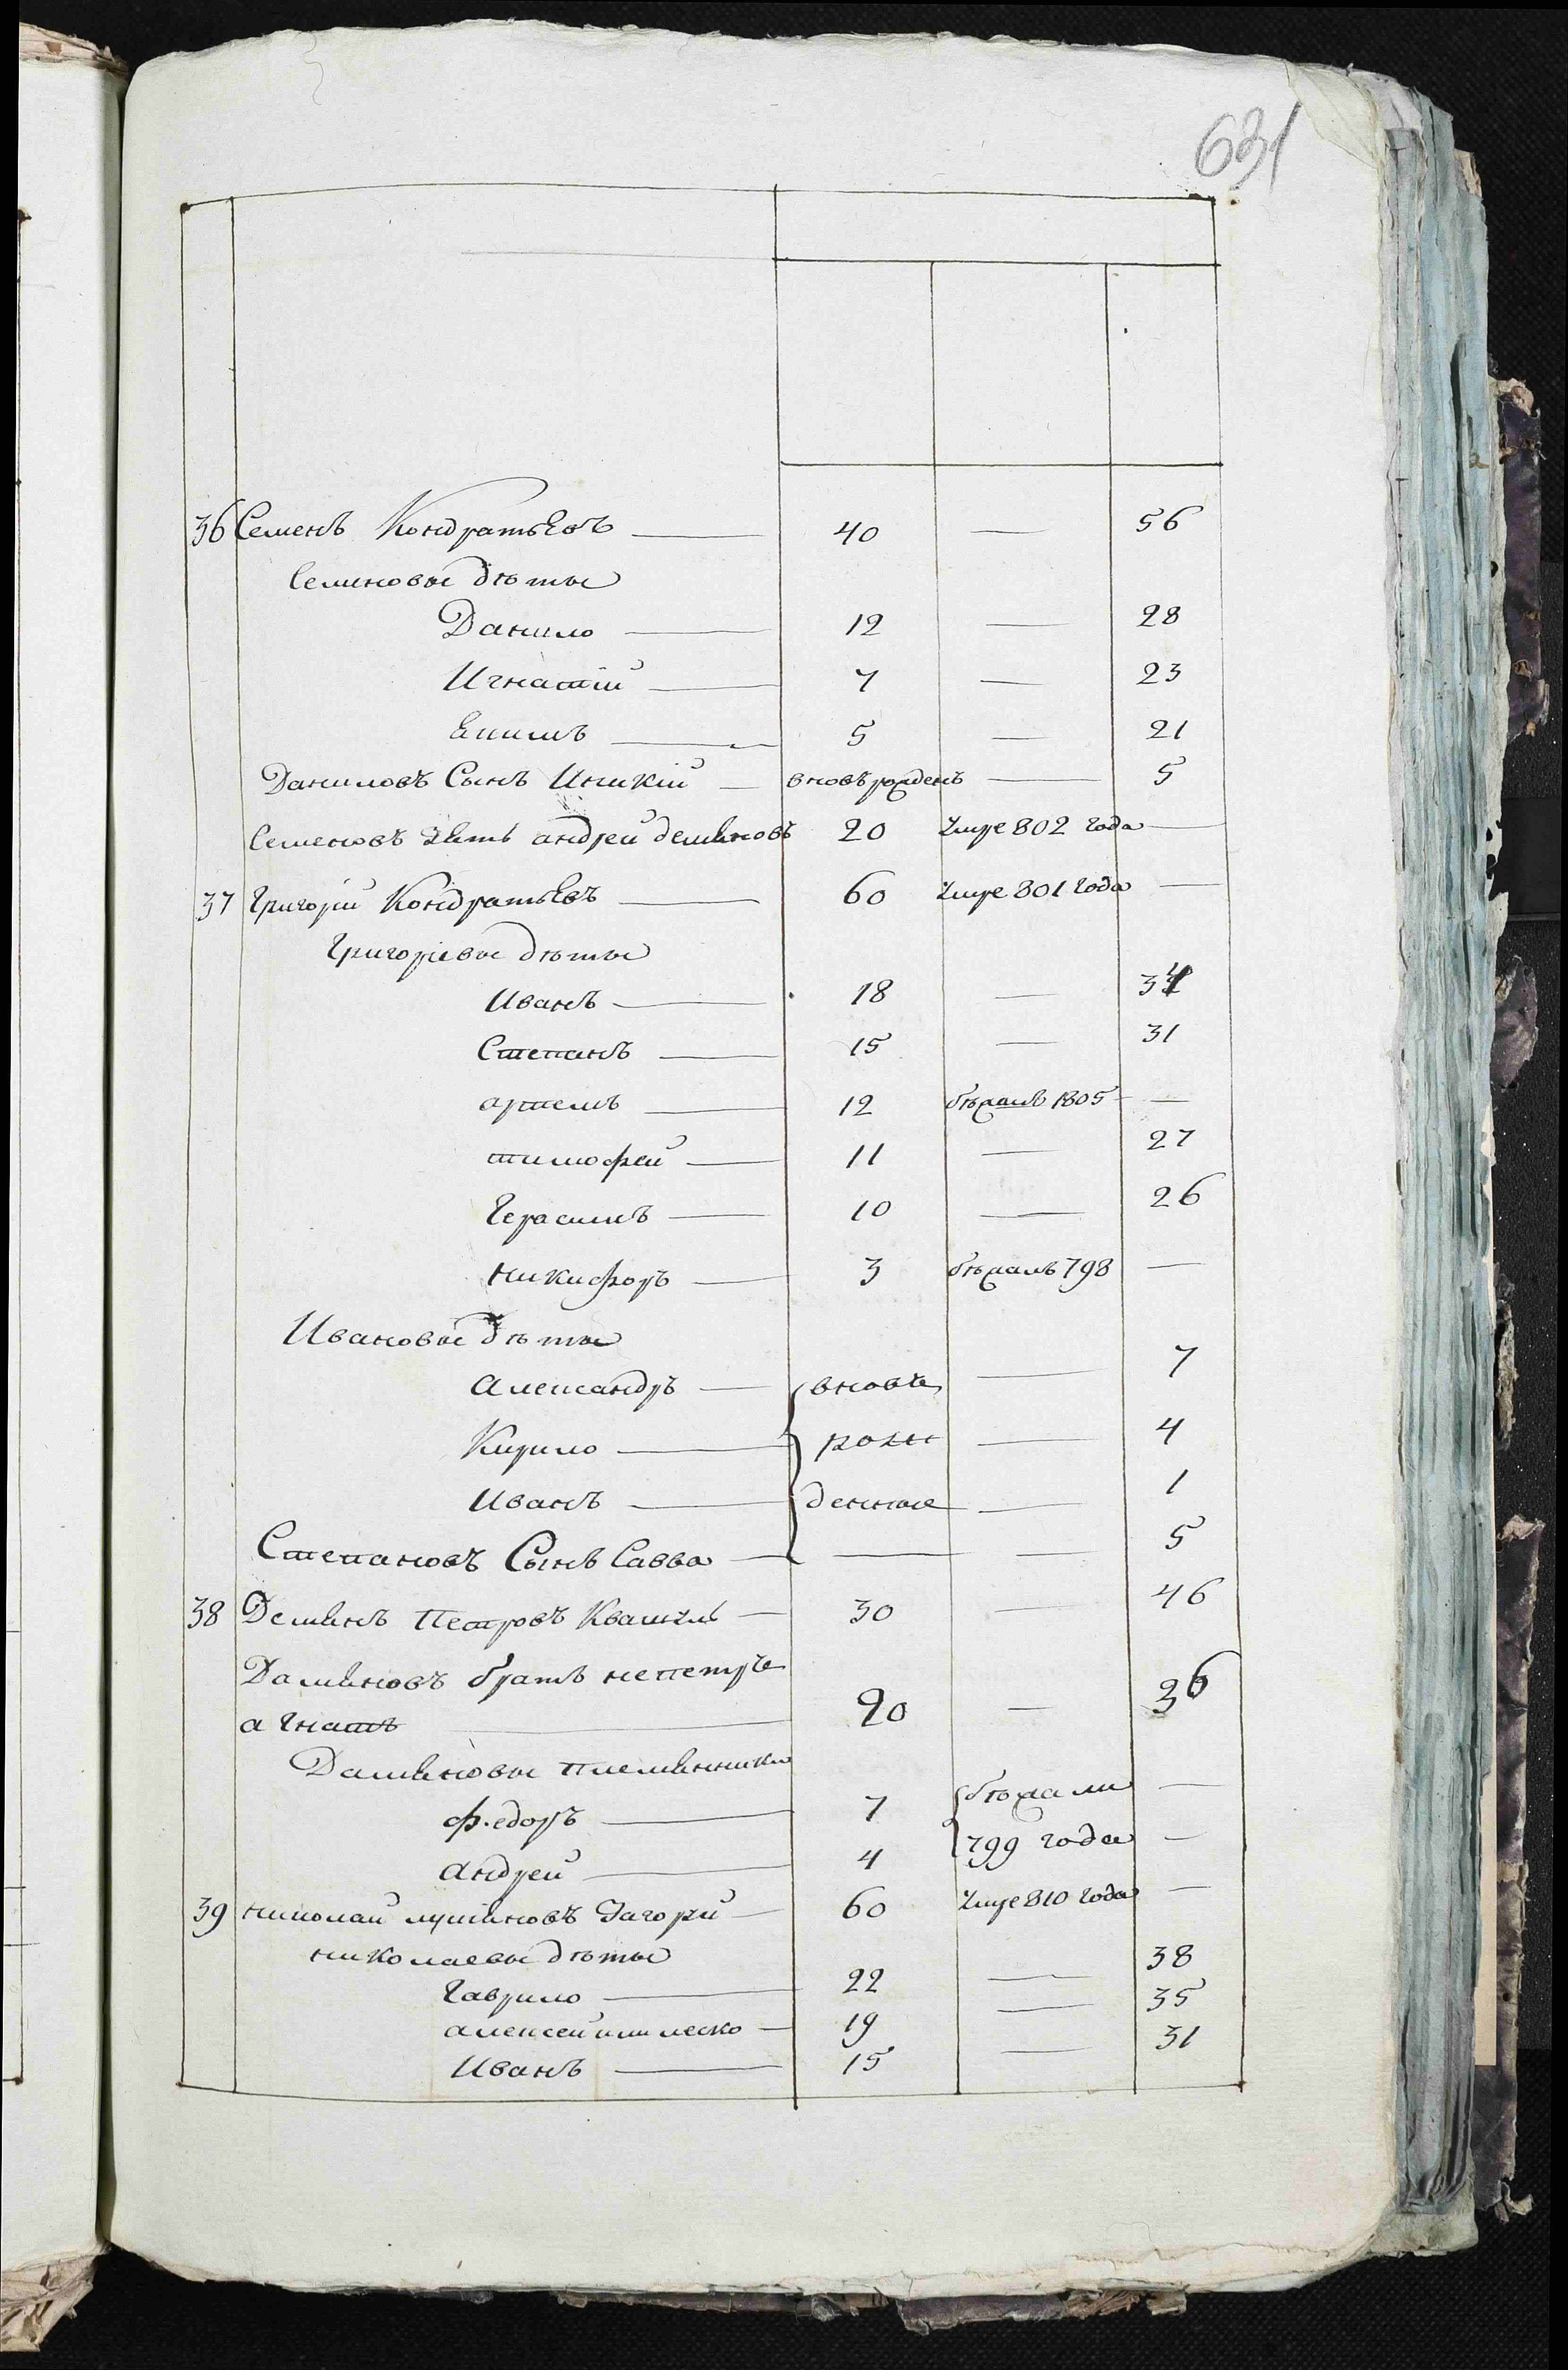 631
36 Семенъ Кондратьевъ 40 — 56
Семеновы дѣти
Данило 12 — 28
Игнатiй 7 — 23
Екимъ 5 — 21
Даниловъ Сынъ Никiй вновь рожденъ — 5
Семеновъ зять андрей демяновъ 20 умре 802 года —
37 Григорiй Кондратьевъ 60 умре 801 года —
Григорiевы дѣти
Иванъ 18 — 34
Степанъ 15 — 31
артемъ 12 бѣжалъ 1805 —
тимофей 11 — 27
Герасимъ 10 — 26
никифоръ 3 бѣжалъ 798 —
Ивановы дѣти
Александръ вновь — 7
Кирило рож — 4
Иванъ денные — 1
Степановъ Сынъ Савва — — 5
38 Демянъ Петровъ Квашъ 30 — 46
Дамяновъ братъ не петръ
а Гнатъ 20 — 36
Дамяновы племянники
федоръ 7 бѣжали —
Андрей 4 799 года —
39 николай лукiяновъ Загорй 60 умре 810 года —
николаевы дѣти
Гаврило 22 — 38
алексей или леско 19 — 35
Иванъ 15 — 31